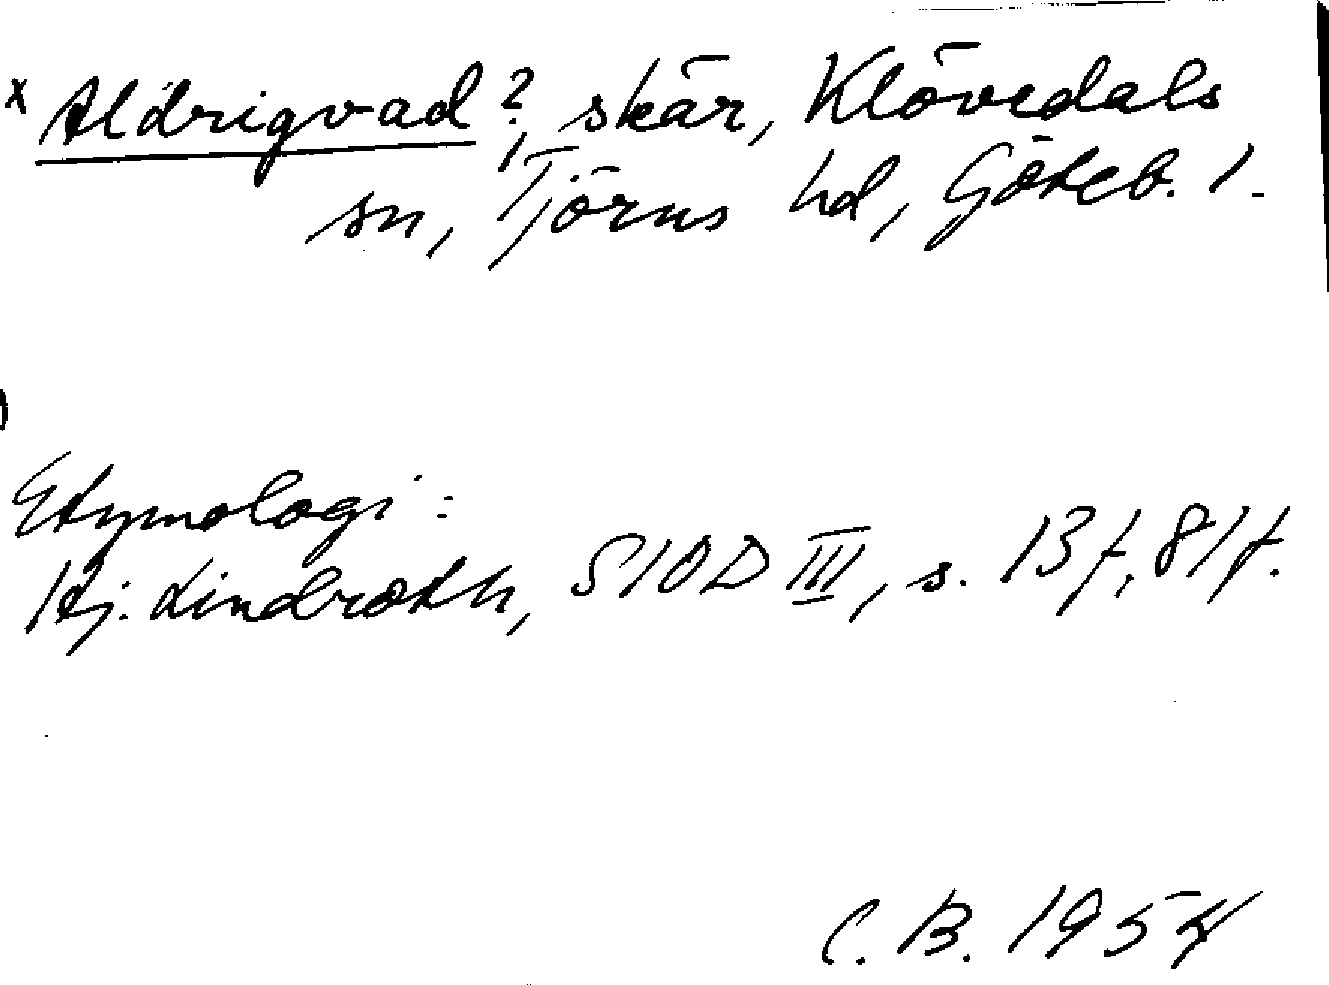 x Aldrigvad?, skär, Klövedals
sn, Tjörns hd, Göteb. l.
Etymologi:
Hj. Lindroth, SIOD III, s. 13 f., 81 f.
C. B. 1954